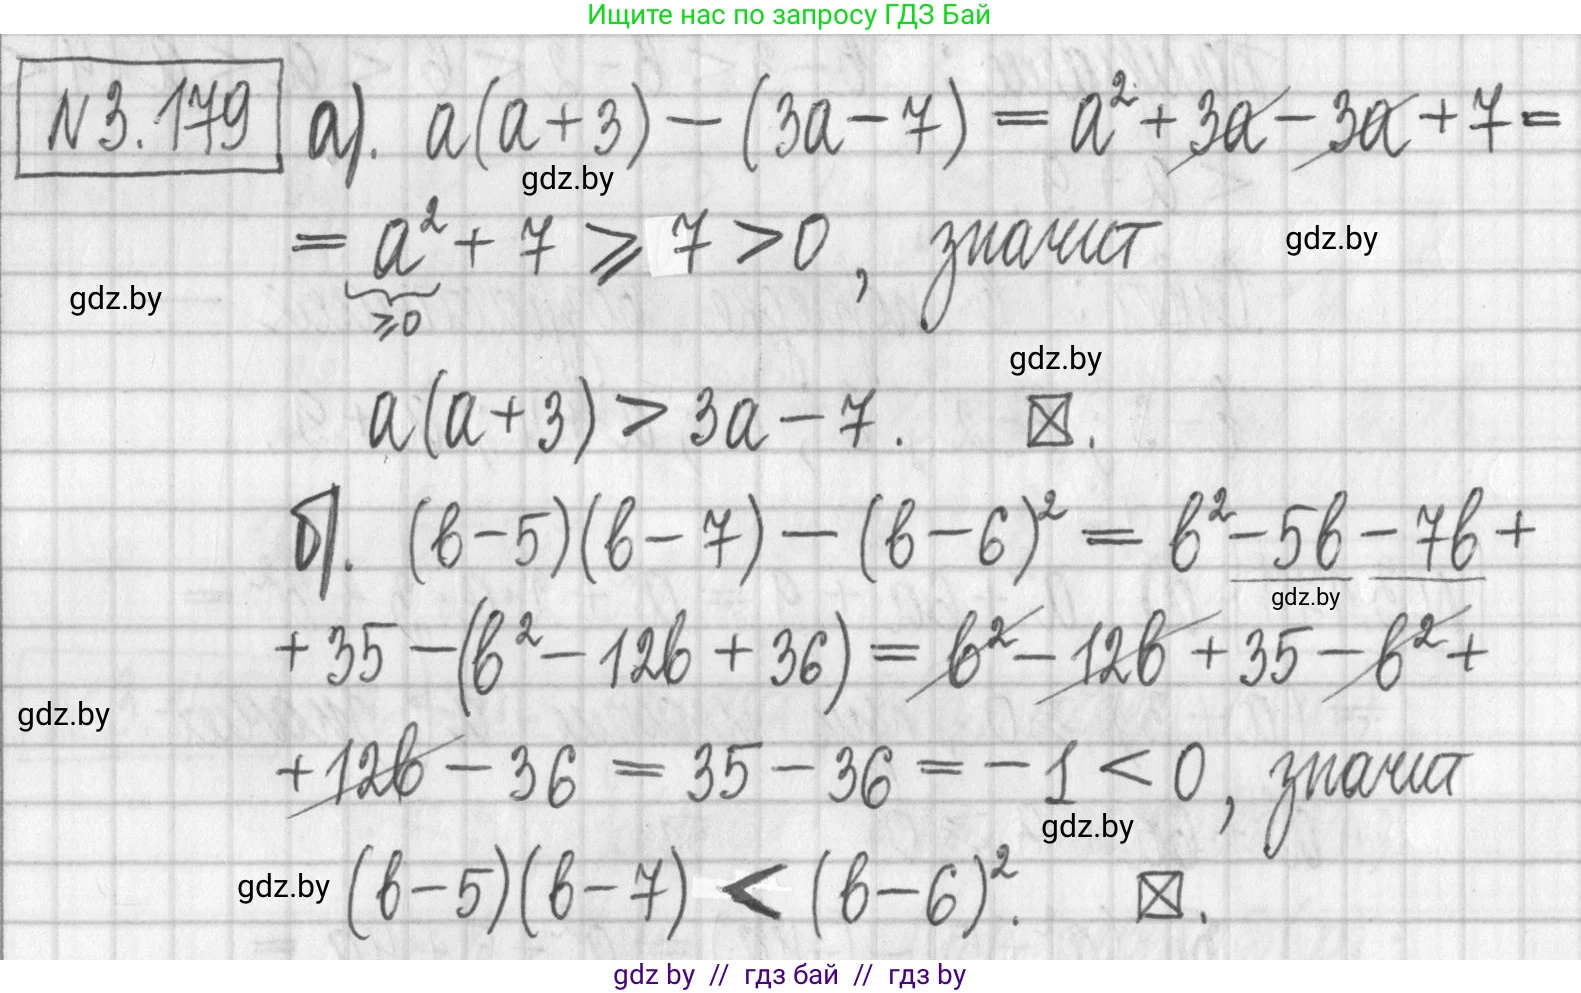 Ищите нас по запросу ГДЗ Бай
N 3.179 а). a(a+3) − (3a−7) = a² + 3a − 3a + 7 =
gdz.by
= a² + 7 ⩾ 7 > 0, значит
gdz.by
gdz.by
⩾0
gdz.by
a(a+3) > 3a − 7. ⊠.
б). (b−5)(b−7) − (b−6)² = b² − 5b − 7b +
gdz.by
+ 35 − (b² − 12b + 36) = b² − 12b + 35 − b² +
gdz.by
+ 12b − 36 = 35 − 36 = −1 < 0, значит
gdz.by
gdz.by
(b−5)(b−7) < (b−6)². ⊠.
gdz by // гдз бай // гдз by